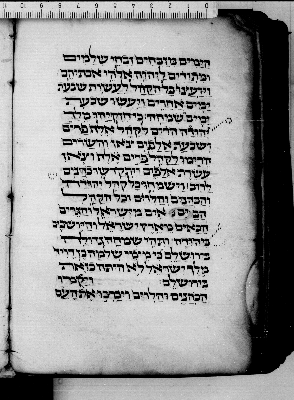 הימים מזבחים זבחי שלמים
ומתודים ליהוה אלהי אבתיהם
ויועצו כל הקהל לעשות שבעת
ימים אחרים ויעשו שבעת
ימים שמחה כי חזקיהו מלך
יהודה הרים לקהל אלף פרים
ושבעת אלפים צאן והשרים
הרימו לקהל פרים אלף וצאן
עשרת אלפים ויתקדשו כהנים
לרוב וישמחו כל קהל יהודה
והכהנים והלוים וכל הקהל
הבאים מישראל והגרים
הבאים מארץ ישראל והיושבים
ביהודה ותהי שמחה גדולה
בירושלם כי מימי שלמה בן דויד
מלך ישראל לא היתה כזאת
בירושלם ויקמו
הכהנים והלוים ויברכו את העם